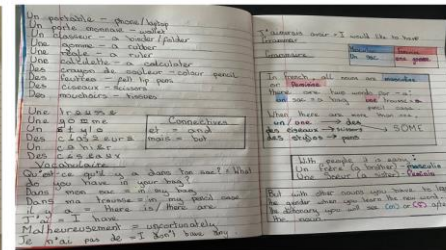 Un portable - phone/laptop
Un porte monnaie - wallet
Un classeur - a binder/folder
Une gomme - a rubber
Une règle - a ruler
Une calculette - a calculator
Des crayon de couleur - colour pencil
Des feutres - felt tip pens
Des ciseaux - scissors
Des mouchoirs - tissues
Une trousse
Une gomme
Un stylo
Des classeurs
Un cahier
Des ciseaux
Connectives
et = and
mais = but
Vocabulaire
Qu'est-ce qu'il y a dans ton sac? = What
do you have in your bag?
Dans mon sac = in my bag
Dans ma trousse = in my pencil case
il y a = there is / there are
J'ai = I have
Malheureusement = unfortunately
Je n'ai pas de = I don't have any
J'aimerais avoir = I would like to have
Grammaire
Un sac
In French, all nouns are masculine
or feminine
there are two words for - a:
un sac = a bag une trousse = a
pencil case
When there are more than one,
un / une → des
des ciseaux → scissors
des stylos → pens
SOME
With people it is easy:
Un frère (a brother)
Une soeur (a sister)
But with other nouns you have to learn
the gender when you learn the new word. In
the dictionary you will see (m) or (f) after
the noun.